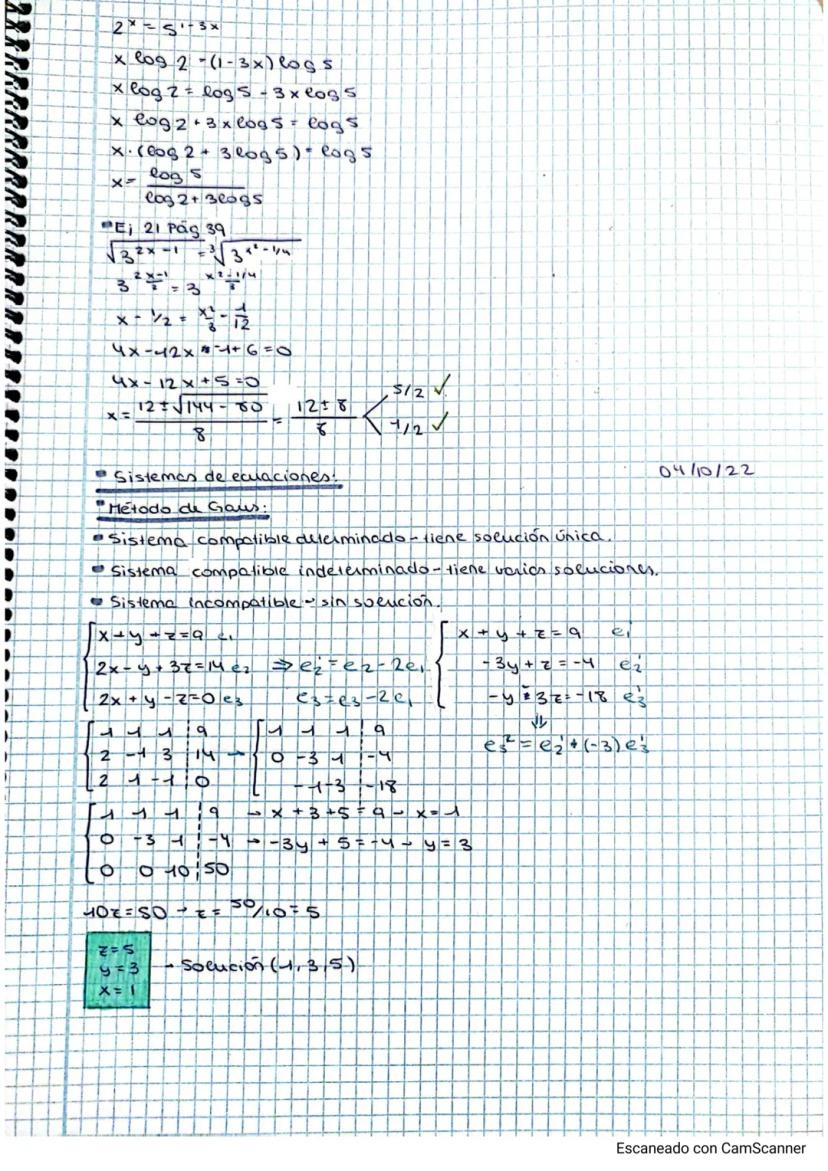 2^x = 5^(1-3x)
x log 2 = (1-3x) log 5
x log 2 = log 5 - 3x log 5
x log 2 + 3x log 5 = log 5
x·(log 2 + 3 log 5) = log 5
x = log 5 / (log 2 + 3 log 5)
Ej 21 Pág 39
√(3^(2x-1)) = ³√(3^(x²-1/4))
3^((2x-1)/2) = 3^((x²-1/4)/3)
x - 1/2 = x²/3 - 1/12
4x - 12x - 1 + 6 = 0
4x - 12x + 5 = 0
x = (12 ± √(144 - 80)) / 8 = (12 ± 8) / 8 < 5/2 ✓ 1/2 ✓
Sistemas de ecuaciones: 04/10/22
Método de Gaus:
Sistema compatible determinado - tiene solución única.
Sistema compatible indeterminado - tiene varias soluciones.
Sistema incompatible - sin solución.
x + y + z = 9 e₁ x + y + z = 9 e₁'
2x - y + 3z = 14 e₂ ⇒ e₂' = e₂ - 2e₁ -3y + z = -4 e₂'
2x + y - z = 0 e₃ e₃ = e₃ - 2e₁ -y - 3z = -18 e₃'
⇓
1 1 1 | 9 1 1 1 | 9
2 -1 3 | 14 → 0 -3 1 | -4 e₃² = e₂' + (-3) e₃'
2 1 -1 | 0 -1 -3 | -18
1 1 1 | 9 → x + 3 + 5 = 9 → x = 1
0 -3 1 | -4 → -3y + 5 = -4 → y = 3
0 0 10 | 50
10z = 50 → z = 50/10 = 5
z = 5
y = 3 → Solución (1, 3, 5)
x = 1
Escaneado con CamScanner